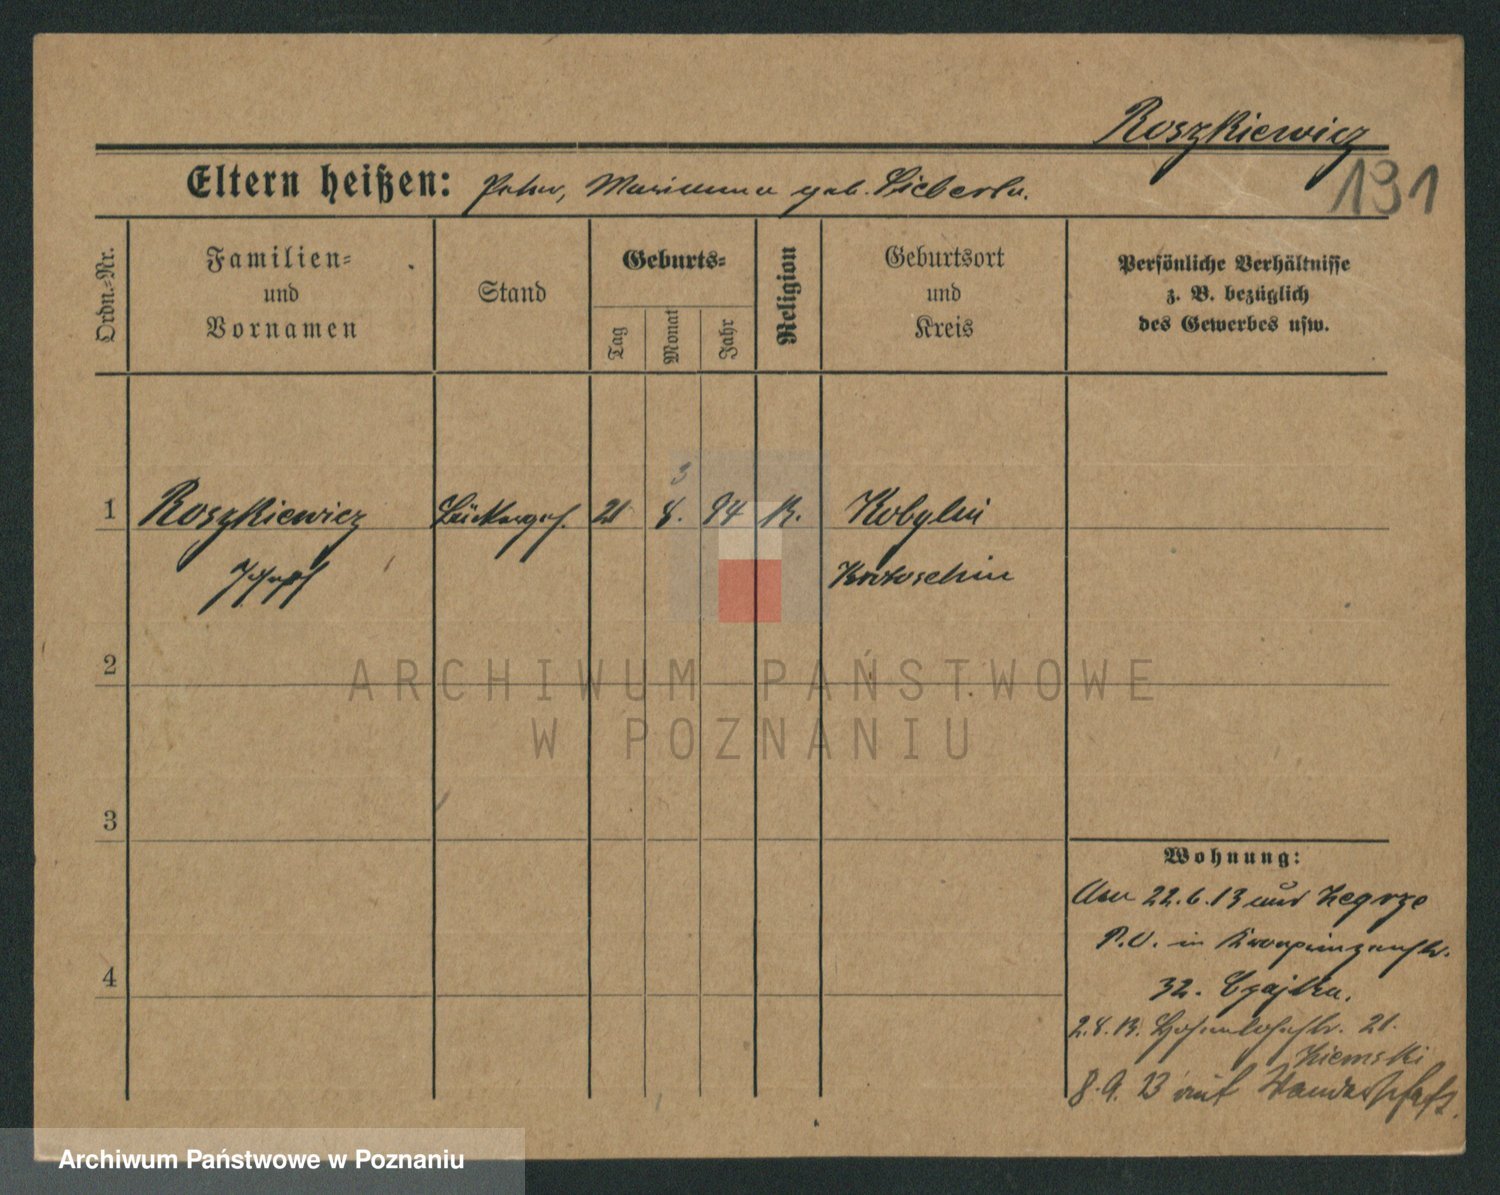 Roszkiewicz
191
Eltern heißen: Peter, Marianna geb. Lieberla.
Ordn.=Nr.
Familien=
und
Vornamen
Stand
Geburts=
Tag
Monat
Jahr
Religion
Geburtsort
und
Kreis
Persönliche Verhältnisse
z. B. bezüglich
des Gewerbes usw.
3
1 Roszkiewicz Bäckerges. 21 8. 94 K. Kobylin
Joseph Krotoschin
2
ARCHIWUM PAŃSTWOWE
W POZNANIU
3
Wohnung:
22.6.13 aus Zegrze
P.O. in Kronprinzenstr.
4
32. Czajka.
2.8.13. Hohenlohestr. 21.
Ziemski
8.9.13 auf Wanderschaft.
Archiwum Państwowe w Poznaniu